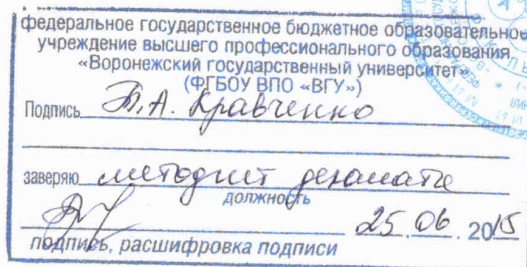 федеральное государственное бюджетное образовательное
учреждение высшего профессионального образования
«Воронежский государственный университет»
(ФГБОУ ВПО «ВГУ»)
Подпись Т.А. Кравченко
заверяю методист деканата
должность
25.06.2015
подпись, расшифровка подписи